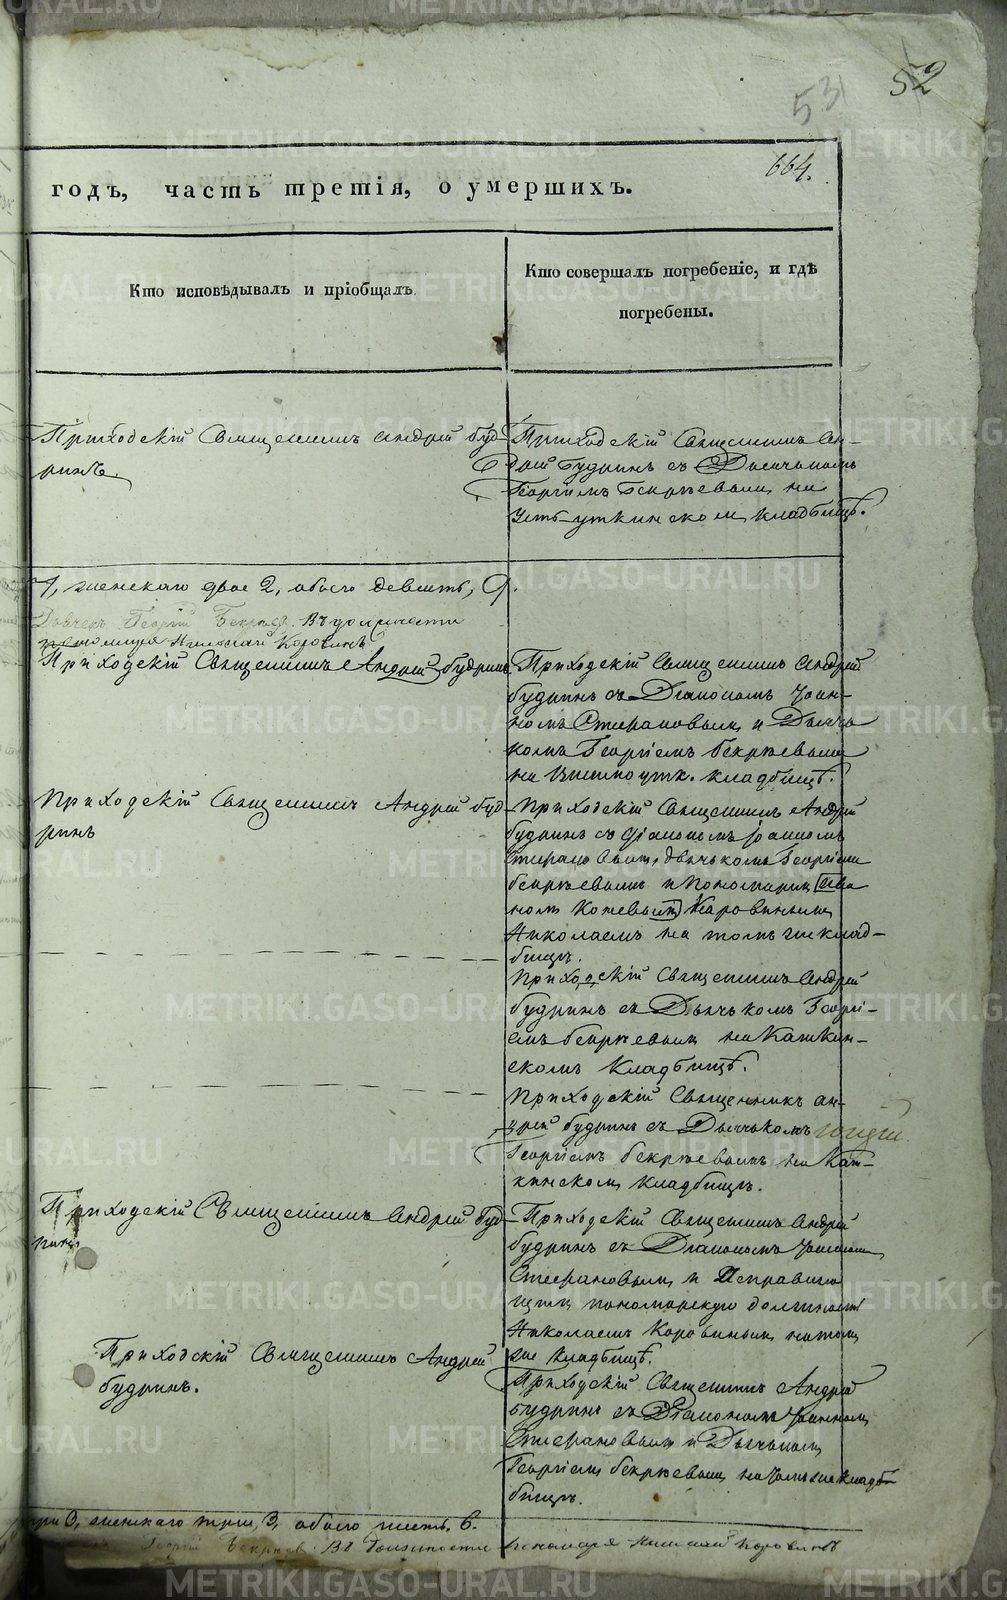 52
53
664.
годъ, часть третія, о умершихъ.
Кто исповѣдывалъ и пріобщалъ
Кто совершалъ погребеніе, и гдѣ
погребены.
Приходскій Священникъ Андрей Буд-
ринъ
Приходскій Священникъ Ан-
дрей Будринъ съ Дьячкомъ
Георгіемъ Бекрѣевымъ на
Усть-уткинскомъ кладбищѣ.
женскаго двое 2, обоего девять, 9.
Георгій Бекрѣев. Въ должности
пономаря Николай Коровинъ
Приходскій Священникъ Андрей Будринъ
Приходскій Священникъ Андрей
Будринъ съ Діакономъ Іоан-
номъ Стефановымъ и Дьяч-
комъ Георгіемъ Бекрѣевымъ
на Висимоутк. кладбищѣ.
Приходскій Священникъ Андрей Буд-
ринъ
Приходскій Священникъ Андрей
Будринъ съ Діакономъ Іоанномъ
Стефановымъ, дьячькомъ Георгіемъ
Бекрѣевымъ и Пономаремъ Ива
номъ Коровинымъ
Николаемъ на томъ же клад-
бищѣ.
Приходскій Священникъ Андрей
Будринъ съ Дьячькомъ Георгі-
емъ Бекрѣевымъ на Кашкин-
скомъ Кладбищѣ.
Приходскій Священникъ Ан-
дрей Будринъ съ Дьячькомъ
Георгіемъ Бекрѣевымъ на Каш-
кинскомъ кладбищѣ.
Приходскій Священникъ Андрей Буд-
ринъ
Приходскій Священникъ Андрей
Будринъ съ Діакономъ Іоанномъ
Стефановымъ и Исправляю
щимъ пономарскую должность
Николаемъ Коровинымъ на томъ
же кладбищѣ.
Приходскій Священникъ Андрей
Будринъ.
Приходскій Священникъ Андрей
Будринъ съ Діакономъ Іоанномъ
Стефановымъ и Дьячкомъ
Георгіемъ Бекрѣевымъ на томъ же кладб-
бищѣ.
три 3, женскаго три, 3, обоего шесть. 6.
Георгій Бекрѣевъ. Въ должности пономаря Николай Коровинъ
METRIKI.GASO-URAL.RU